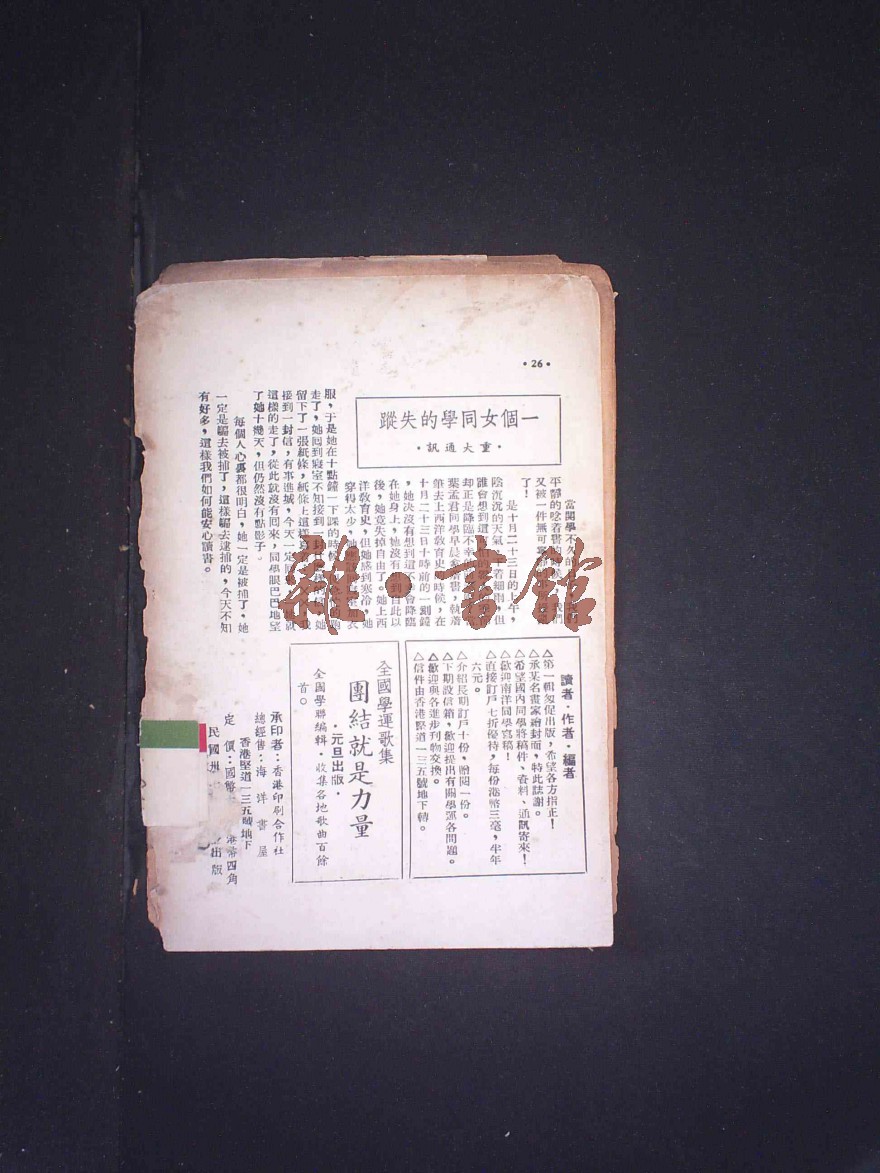 •26•
一個女同學的失蹤
•重大通訊•
當開學不久的
平靜的唸着書
又被一件無可
了!
是十月二十三日的上午,
陰沉沉的天氣 着細雨 但
誰會想到這
却正是降臨不幸
葉孟君同學早晨 着書,執着
筆去上西洋敎育史 時候,在
十月二十三日十時前的一刻鐘
,她決沒有想到這不 會降臨
在她身上,她沒有想到自此以
後,她竟失掉自由了。她上西
洋敎育史,但她感到寒冷,她
穿得太少,她 衣
服,于是她在十點鐘一下課的時候
走了,她囘到寢室不知接到一封
留下了一張紙條,紙條上這樣寫着
接到一封信,有事進城,今天一定回
這樣的走了,從此就沒有回來,同學眼巴巴地望
了她十幾天,但仍然沒有點影子。
每個人心裏都很明白,她一定是被捕了,她
一定是騙去被捕了,這樣騙去逮捕的,今天不知
有好多,這樣我們如何能安心讀書。
讀者•作者•編者
△第一輯匆促出版,希望各方指正!
△承某名畫家繪封面,特此誌謝。
△希望國內同學將稿件、資料、通訊寄來!
△歡迎南洋同學寫稿!
△直接訂戶七折優待,每份港幣三毫,半年
六元。
△介紹長期訂戶十份,贈閱一份。
△下期設信箱,歡迎提出有關學運各問題。
△歡迎與各進步刊物交換。
△信件由香港堅道一三五號地下轉。
全國學運歌集
團結就是力量
•元旦出版•
全國學聯編輯•收集各地歌曲百餘
首。
承印者:香港印刷合作社
總經售:海洋書屋
香港堅道一三五號地下
定價:國幣 港幣四角
民國卅 出版
雜•書館